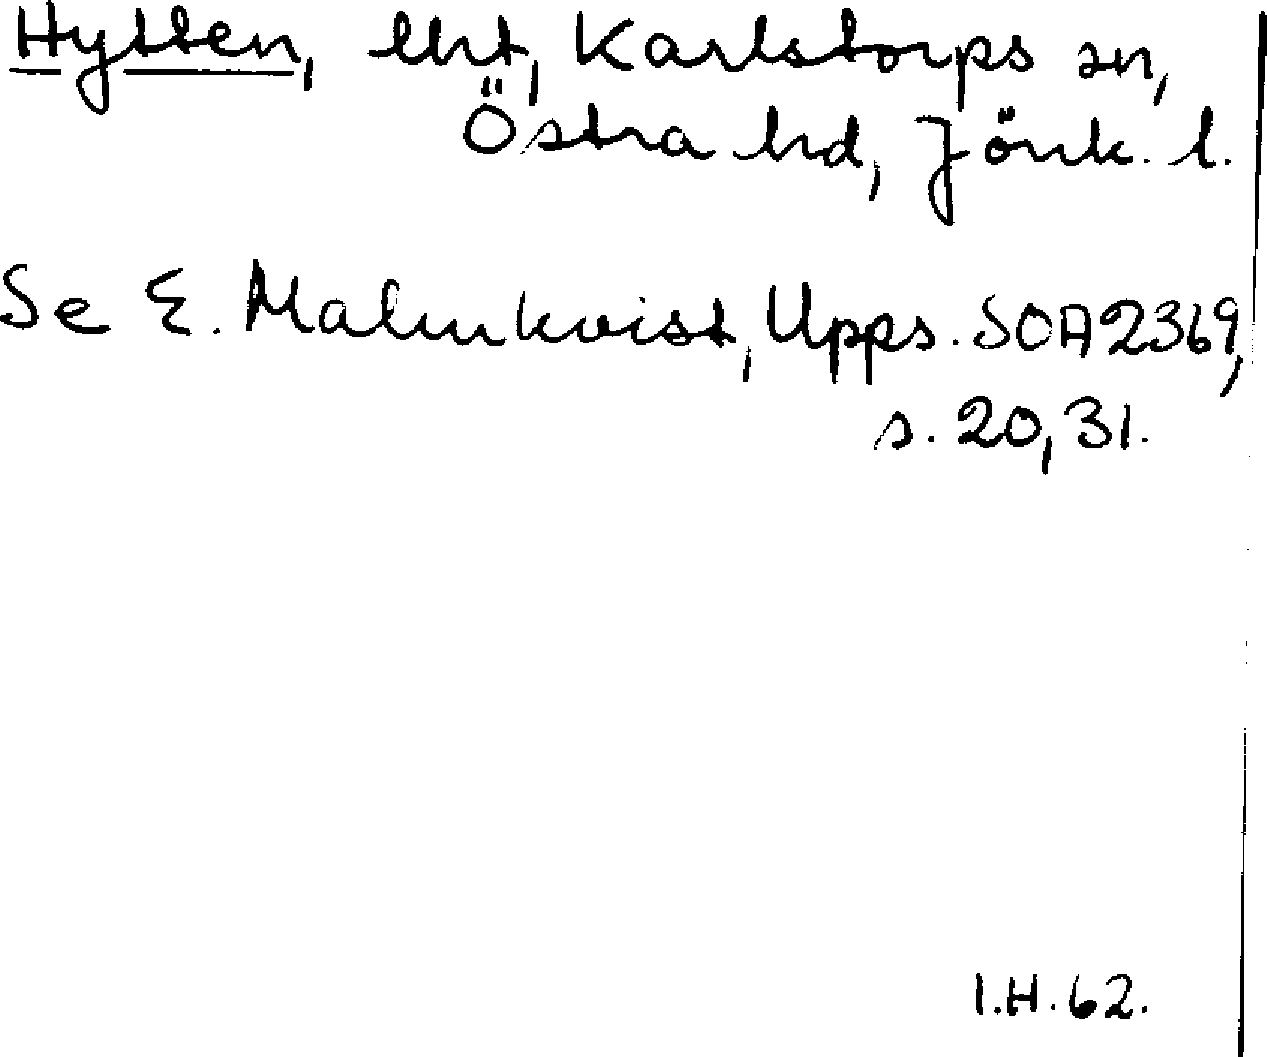 Hytten, lht, Karlstorps sn,
Östra hd, Jönk. l.
Se E. Malmkvist, Upps. SOA 2369,
s. 20, 31.
I.H. 62.